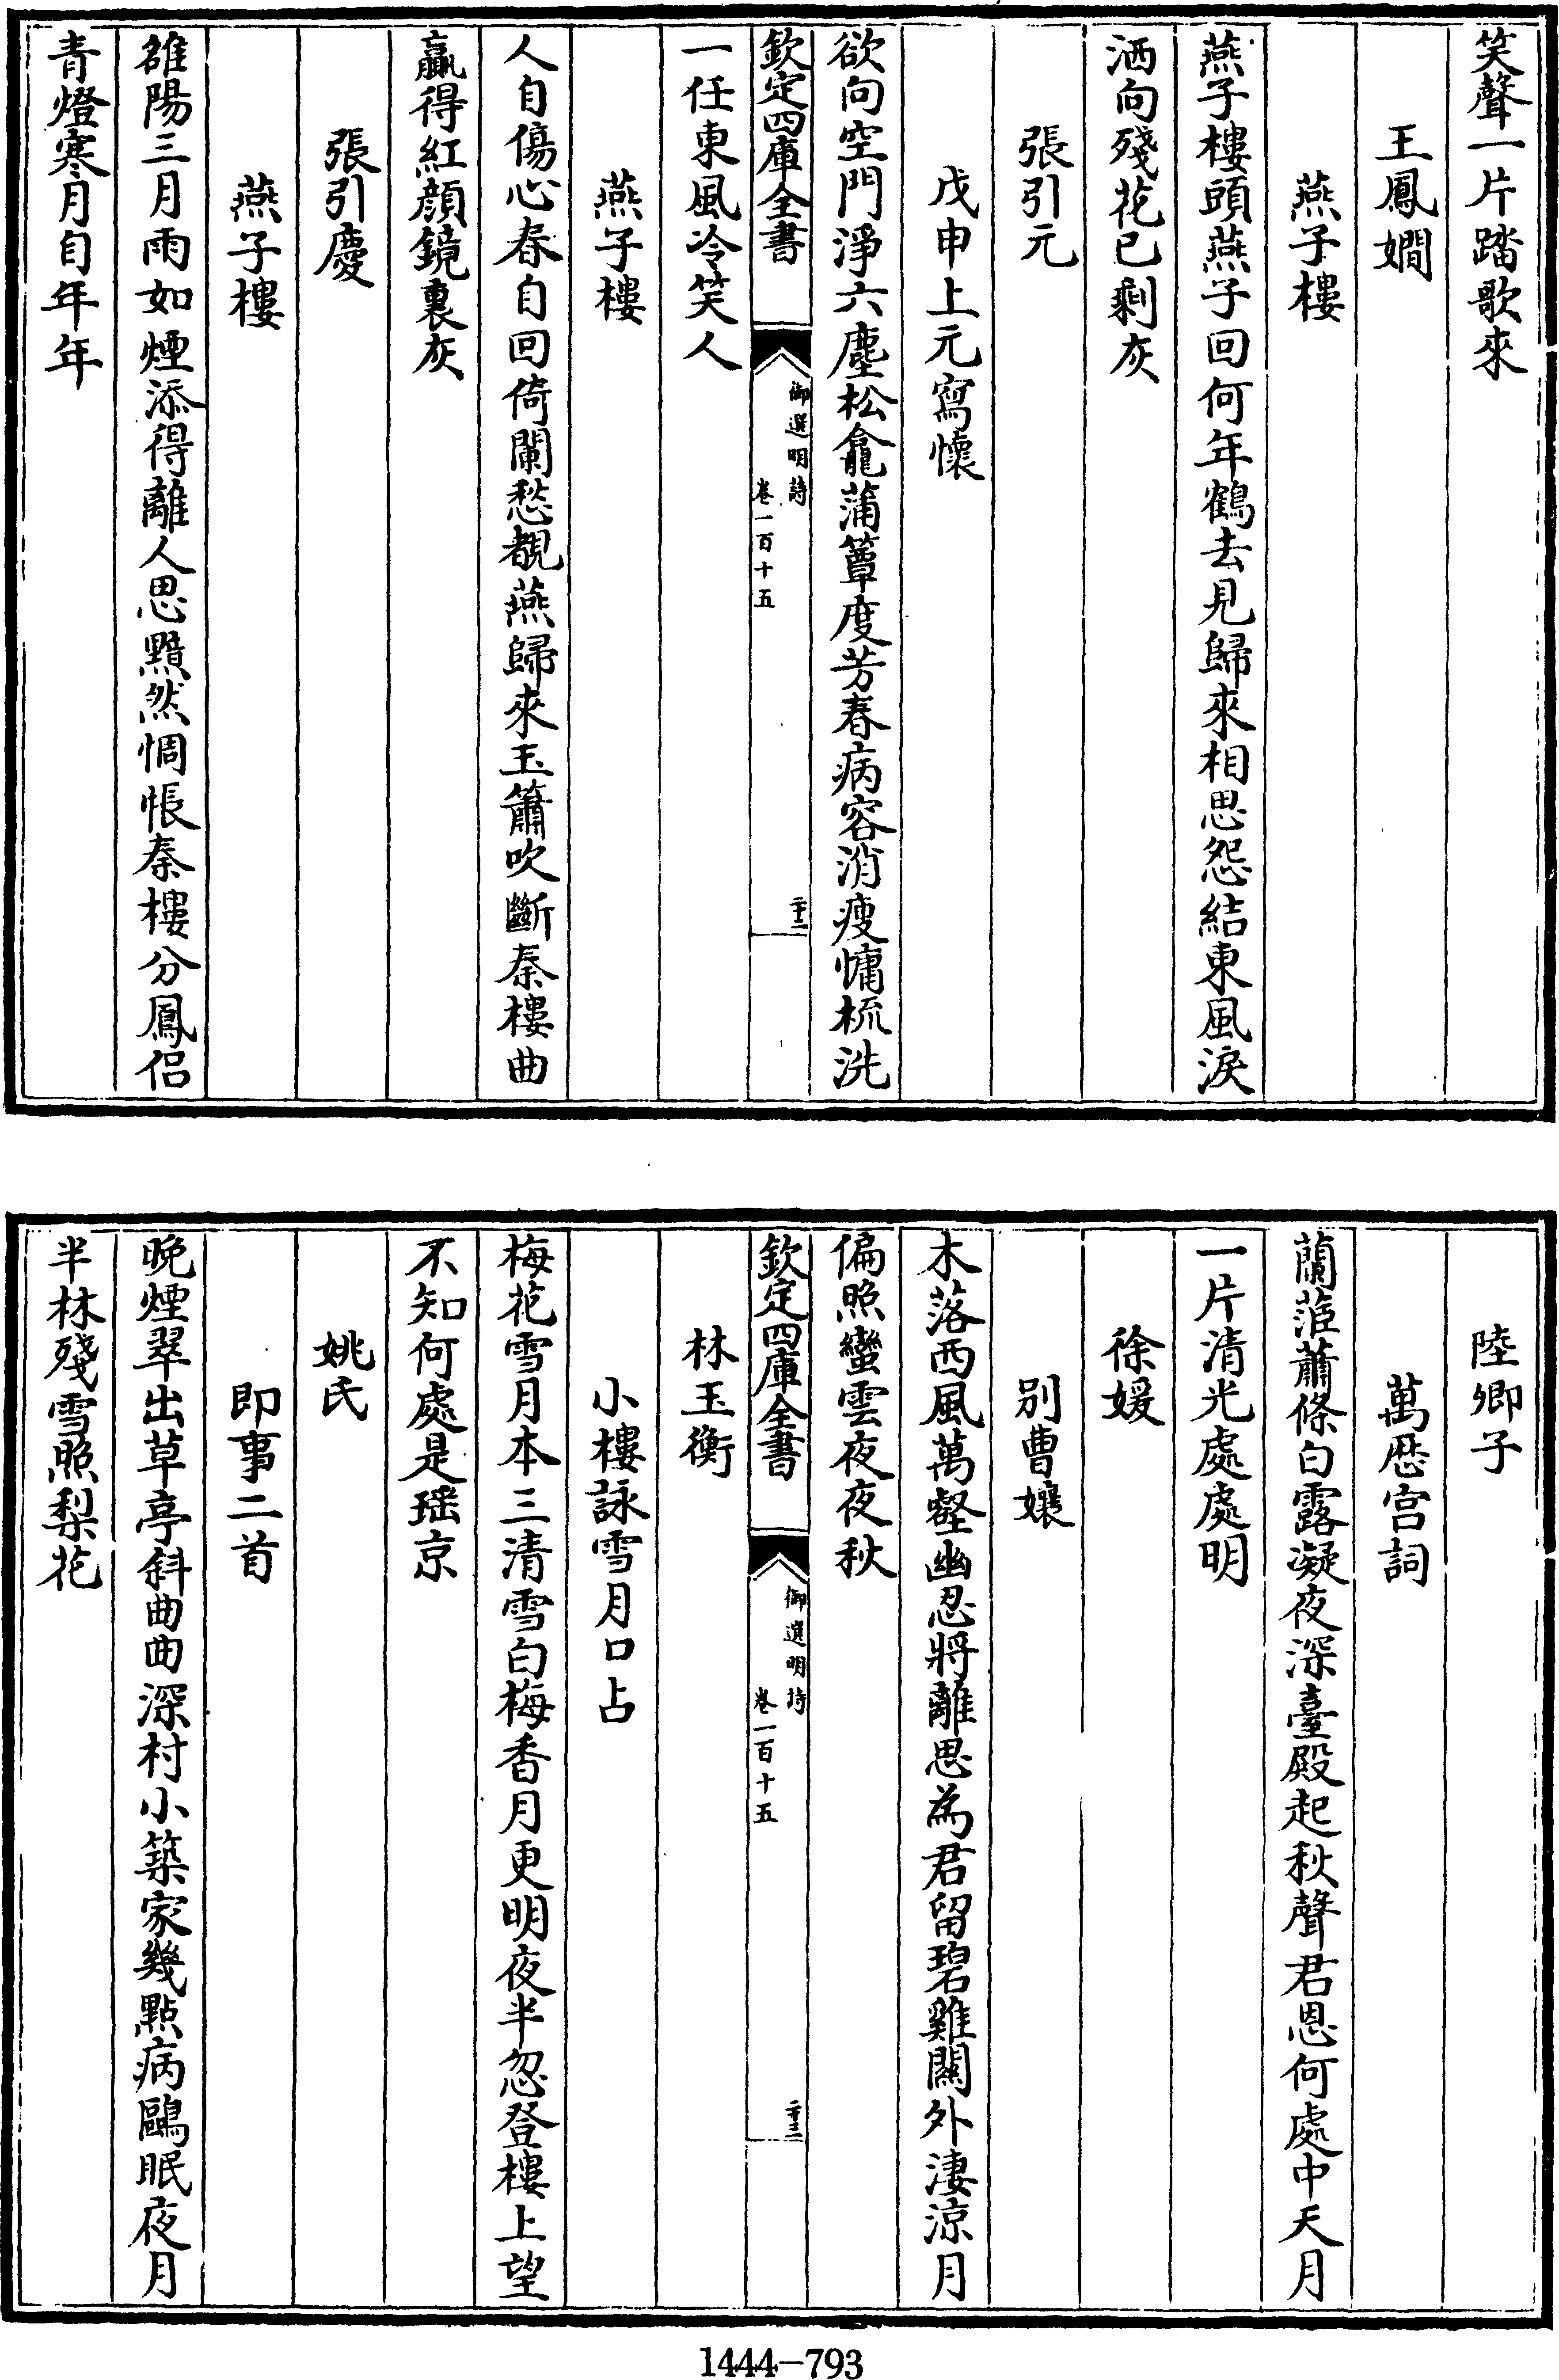 笑聲一片踏歌來
王鳳嫺
燕子樓
燕子樓頭燕子回何年鶴去見歸來相思怨結東風淚
洒向殘花已剩灰
張引元
戊申上元寫懷
欲向空門淨六塵松龕蒲簟度芳春病容消瘦慵梳洗
欽定四庫全書
御選明詩
卷一百十五
二十二
一任東風冷笑人
燕子樓
人自傷心春自回倚闌愁覩燕歸來玉簫吹斷秦樓曲
贏得紅顔鏡裏灰
張引慶
燕子樓
雒陽三月雨如煙添得離人思黯然惆悵秦樓分鳳侣
青燈寒月自年年
陸卿子
萬厯宫詞
蘭蒞蕭條白露凝夜深臺殿起秋聲君恩何處中天月
一片清光處處明
徐媛
别曹孃
木落西風萬壑幽忍將離思為君留碧雞闗外淒涼月
偏照蠻雲夜夜秋
欽定四庫全書
御選明詩
卷一百十五
二十三
林玉衡
小樓詠雪月口占
梅花雪月本三清雪白梅香月更明夜半忽登樓上望
不知何處是瑶京
姚氏
即事二首
晚煙翠出草亭斜曲曲深村小築家幾點病鷗眠夜月
半林殘雪照梨花
1444-793